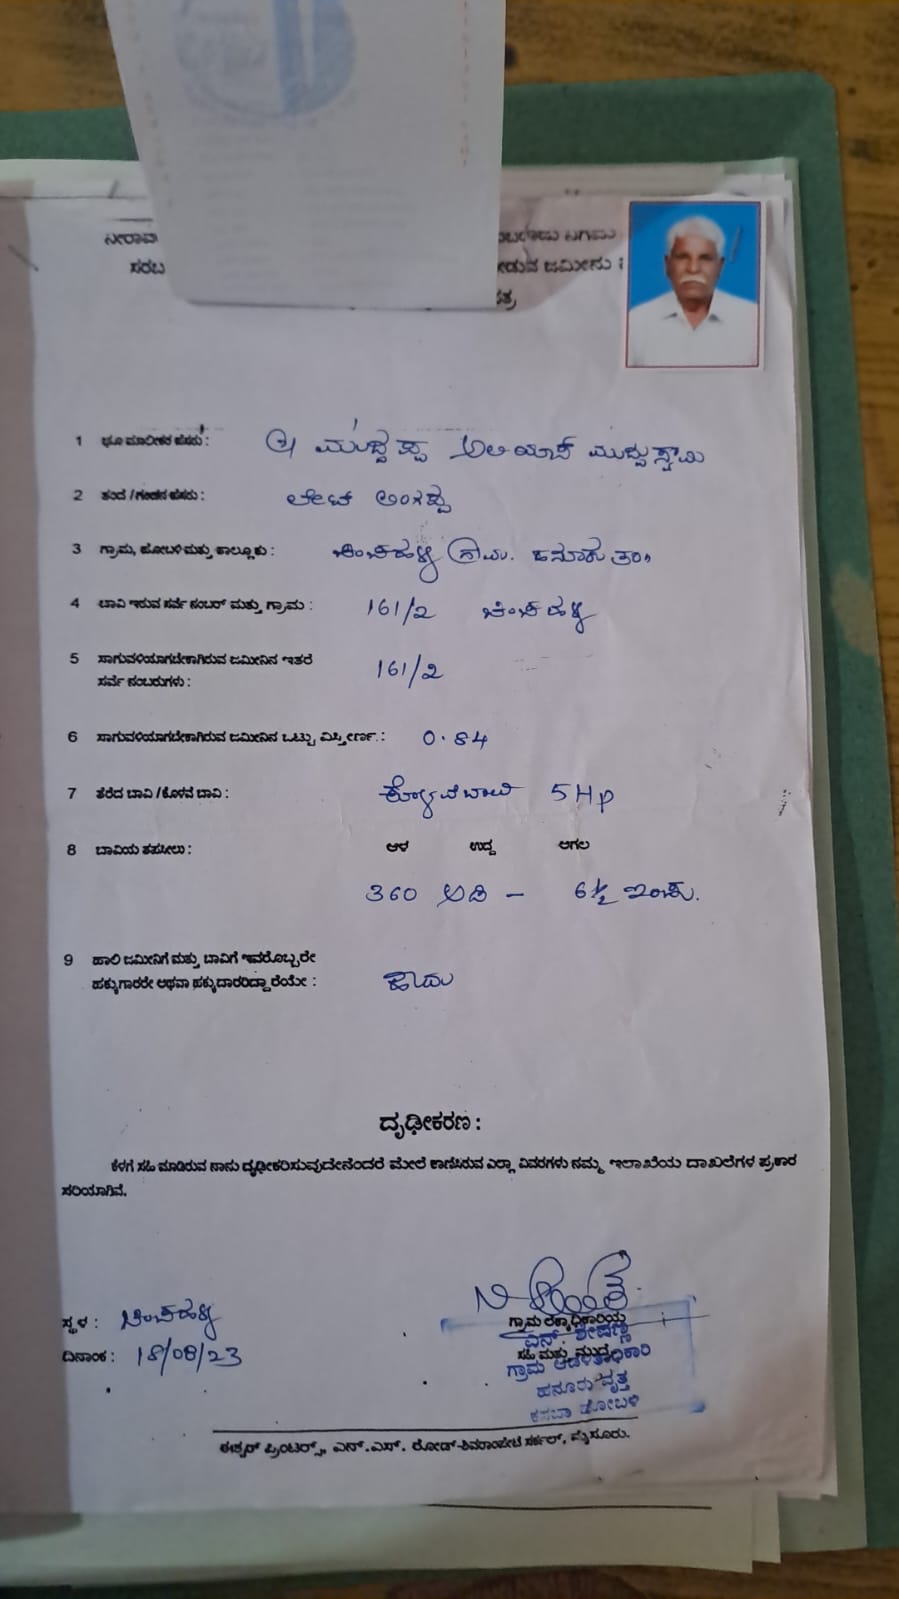 ನೀರಾವ
ನಿಗಮ
ಸರಬ ಡುವ ಜಮೀನು
1 ಭೂ ಮಾಲೀಕರ ಹೆಸರು: ಮುದ್ದಪ್ಪ ಅಲಿಯಾಸ್ ಮುದ್ದುಸ್ವಾಮಿ
2 ತಂದೆ/ಗಂಡನ ಹೆಸರು: ಲೇಟ್ ಅಂಗಪ್ಪ
3 ಗ್ರಾಮ, ಹೋಬಳಿ ಮತ್ತು ತಾಲ್ಲೂಕು: ಹನೂರು
4 ಬಾವಿ ಇರುವ ಸರ್ವೆ ನಂಬರ್ ಮತ್ತು ಗ್ರಾಮ: 161/2
5 ಸಾಗುವಳಿಯಾಗಬೇಕಾಗಿರುವ ಜಮೀನಿನ ಇತರೆ
ಸರ್ವೆ ನಂಬರುಗಳು: 161/2
6 ಸಾಗುವಳಿಯಾಗಬೇಕಾಗಿರುವ ಜಮೀನಿನ ಒಟ್ಟು ವಿಸ್ತೀರ್ಣ: 0.84
7 ತೆರೆದ ಬಾವಿ/ಕೊಳವೆ ಬಾವಿ: 5 Hp
8 ಬಾವಿಯ ತಪಸೀಲು: ಆಳ ಉದ್ದ ಅಗಲ
360 ಅಡಿ – 6½ ಇಂಚು.
9 ಹಾಲಿ ಜಮೀನಿಗೆ ಮತ್ತು ಬಾವಿಗೆ ಇವರೊಬ್ಬರೇ
ಹಕ್ಕುಗಾರರೇ ಅಥವಾ ಹಕ್ಕುದಾರರಿದ್ದಾರೆಯೇ: ಹೌದು
ದೃಢೀಕರಣ:
ಕೆಳಗೆ ಸಹಿ ಮಾಡಿರುವ ನಾನು ದೃಢೀಕರಿಸುವುದೇನೆಂದರೆ ಮೇಲೆ ಕಾಣಿಸಿರುವ ಎಲ್ಲಾ ವಿವರಗಳು ನಮ್ಮ ಇಲಾಖೆಯ ದಾಖಲೆಗಳ ಪ್ರಕಾರ
ಸರಿಯಾಗಿವೆ.
ಸ್ಥಳ:
ಗ್ರಾಮ ಲೆಕ್ಕಾಧಿಕಾರಿಯ
ಎನ್. ಶೇಷಣ್ಣ
ದಿನಾಂಕ: 18/08/23 ಸಹಿ ಮತ್ತು ಮುದ್ರೆ
ಗ್ರಾಮ ಆಡಳಿತಾಧಿಕಾರಿ
ಹನೂರು ವೃತ್ತ
ಕಸಬಾ ಹೋಬಳಿ
ಈಶ್ವರ್ ಪ್ರಿಂಟರ್ಸ್, ಎನ್.ಎಸ್. ರೋಡ್-ಶಿವರಾಂಪೇಟೆ ಸರ್ಕಲ್, ಮೈಸೂರು.